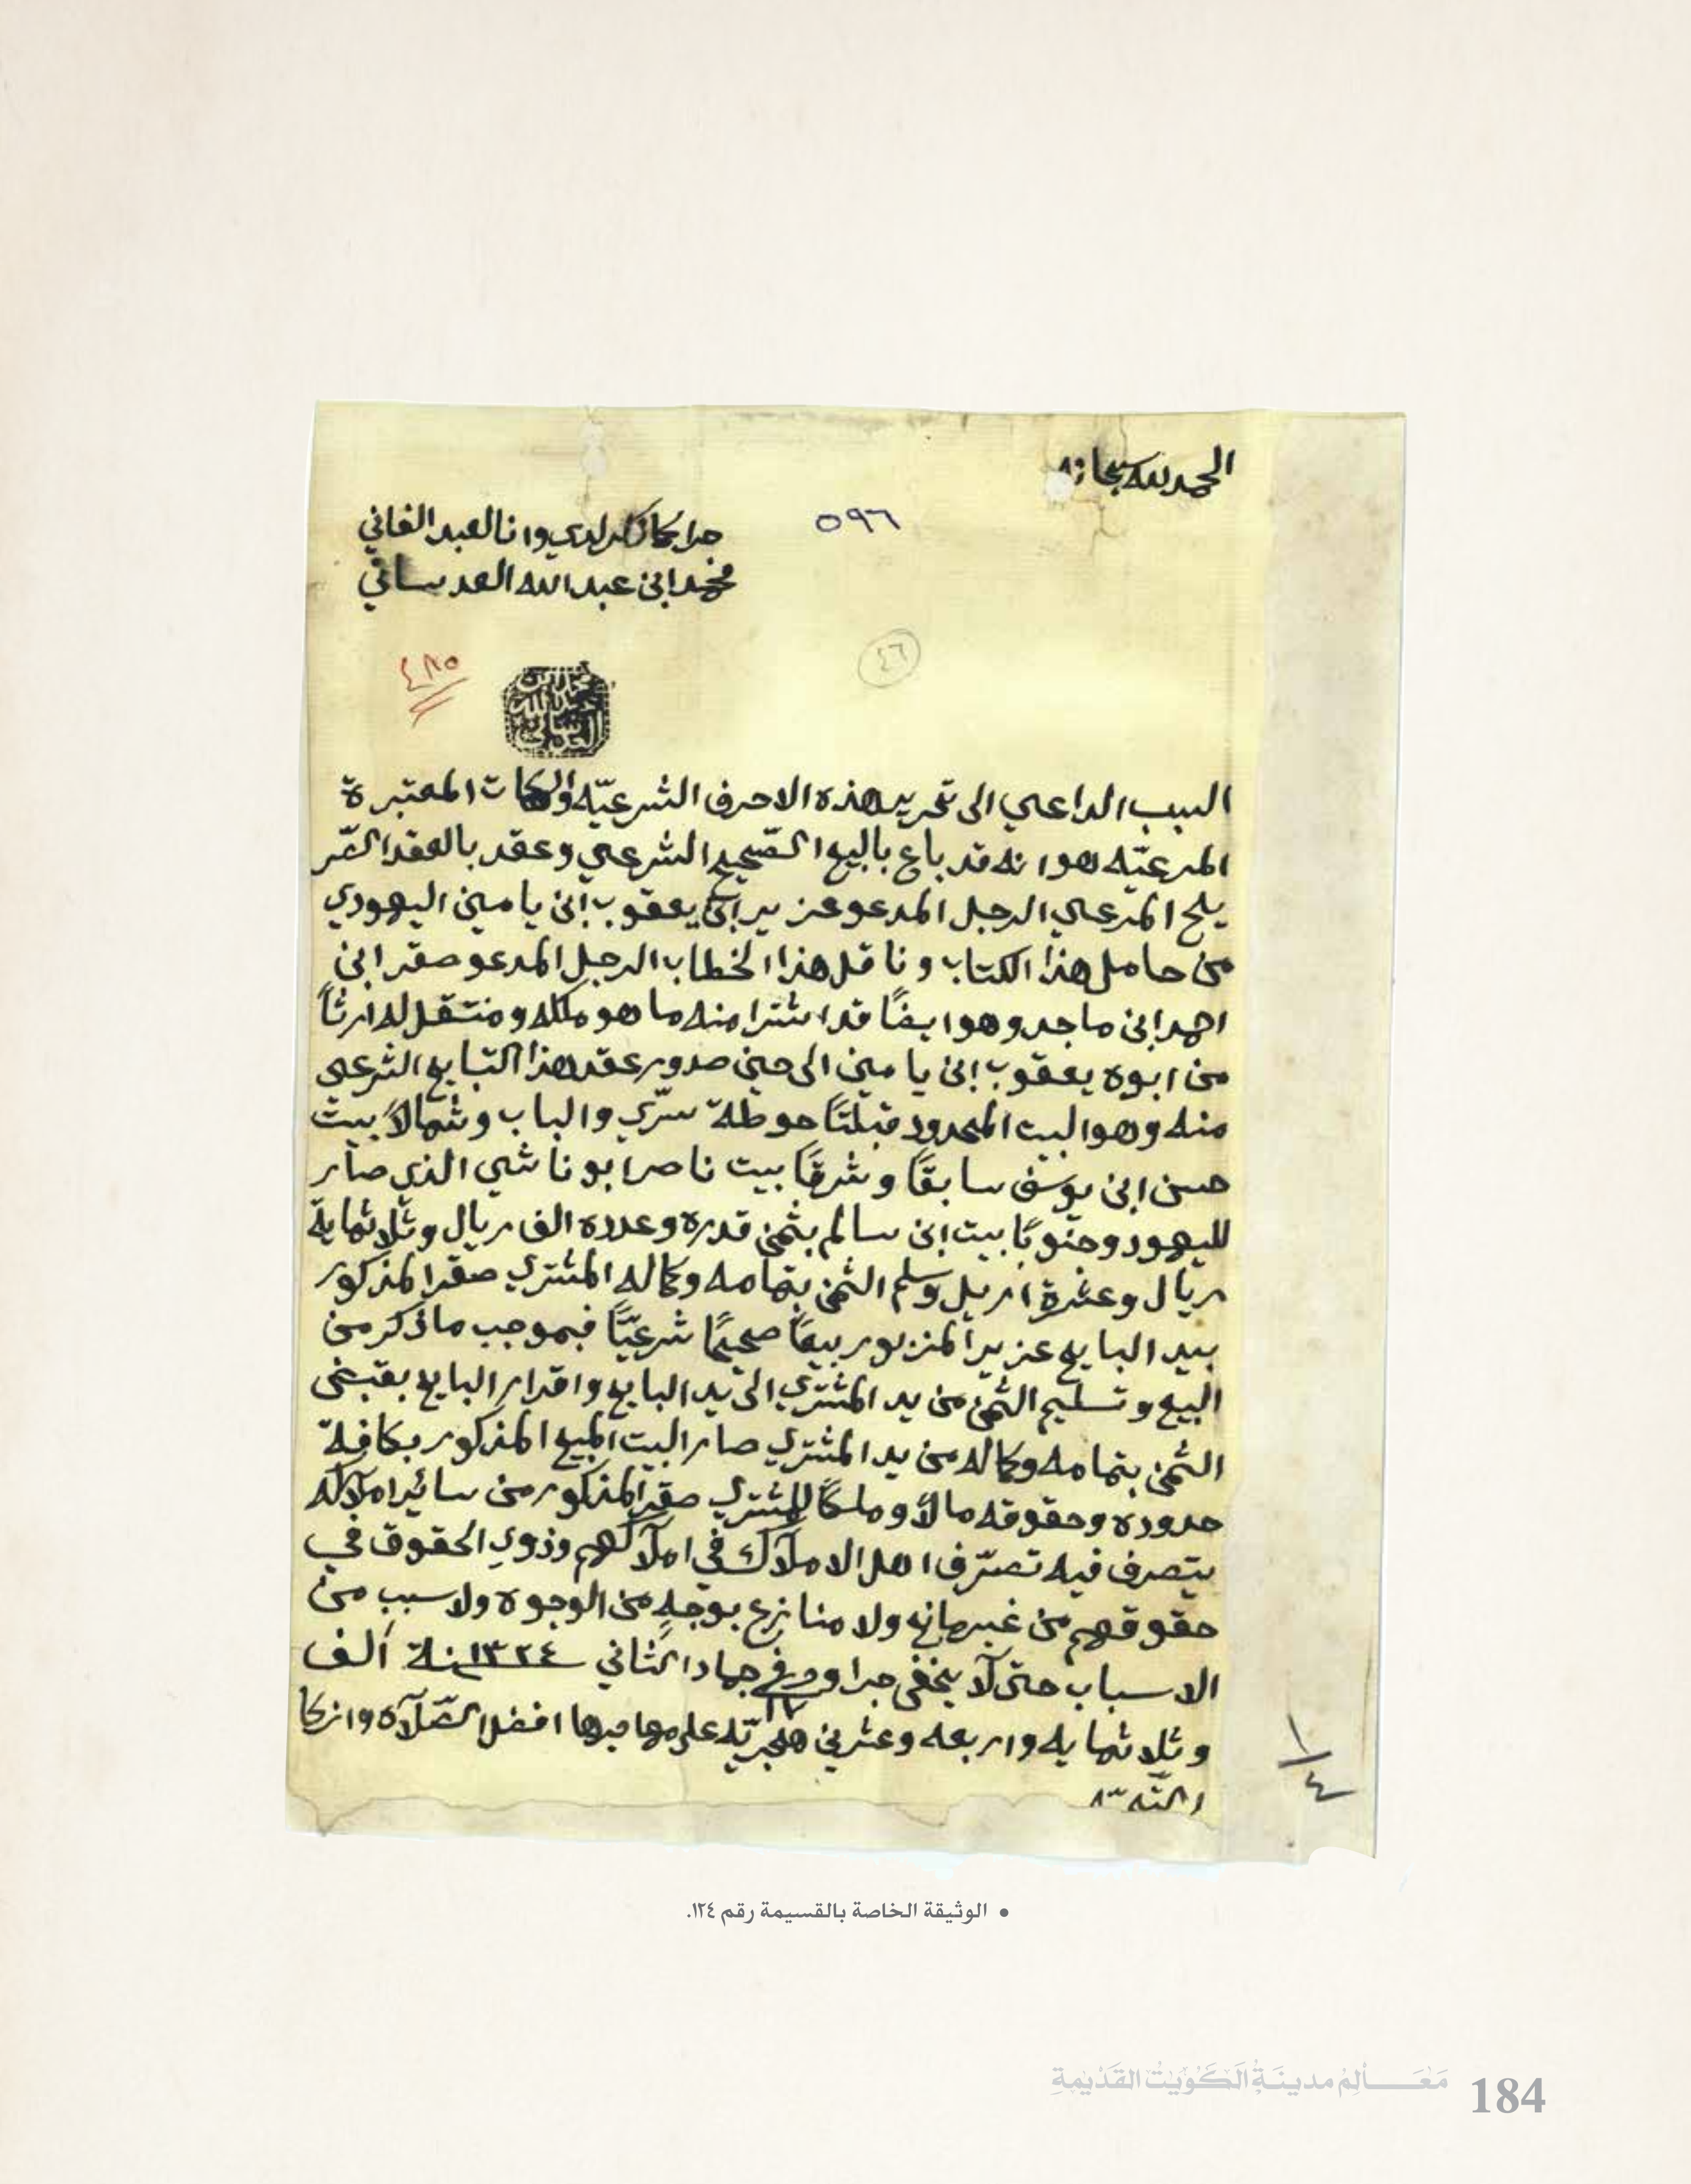 الحمد لله سبحانه
٥٩٦
جرا كما ذكر لدي وانا العبد الفاني
محمد ابن عبدالله العدساني
٤٦
٤٨٥
محمد ابن عبدالله العدساني
السبب الداعي الى تحرير هذه الاحرف الشرعيّه والكلمات المعتبرة
المرعيّه هو انه قد باع بالبيع الصّحيح الشرعي وعقد بالعقد الصّر
يح المرعي الرجل المدعو عزير ابن يعقوب ابن يامين اليهودي
من حامل هذا الكتاب وناقل هذا الخطاب الرجل المدعو صقر ابن
احمد ابن ماجد وهو ايضًا قد اشترا منه ما هو ملكه ومنتقل له ارثًا
من ابوه يعقوب ابن يامين الى حين صدور عقد هذا التبايع الشرعي
منه وهو البيت المحدود قبلتًا حوطة سرّي والباب وشمالاً بيت
حسن ابن يوسف سابقًا وشرقًا بيت ناصر ابو ناشي الذي صار
لليهود وجنوبًا بيت ابن سالم بثمن قدره وعدده الف ريال وثلاثماية
ريال وعشرة اريل وسلم الثمن بتمامه وكماله المشتري صقر المذكور
بيد البايع عزير المزبور بيعًا صحيحًا شرعيًّا فبموجب ما ذكر من
البيع وتسليم الثمن من يد المشتري الى يد البايع واقرار البايع بقبض
الثمن بتمامه وكماله من يد المشتري صار البيت المبيع المذكور بكافة
حدوده وحقوقه مالاً وملكًا للمشتري صقر المذكور من سائر املاكه
يتصرف فيه تصرّف اهل الاملاك في املاكهم وذوي الحقوق في
حقوقهم من غير مانع ولا منازع بوجهٍ من الوجوه ولا سبب من
الاسباب حتى لا يخفى جرا وحرر في ١٧ جماد الثاني ١٣٢٤ سنة الف
وثلاثمايه واربعه وعشرين هجريّه على مهاجرها افضل الصّلاة وازكا
التحيّه
١/٤
• الوثيقة الخاصة بالقسيمة رقم ١٢٤.
مَعَالِمُ مدينَةِ الكُوَيْتِ القَدْيمةِ 184